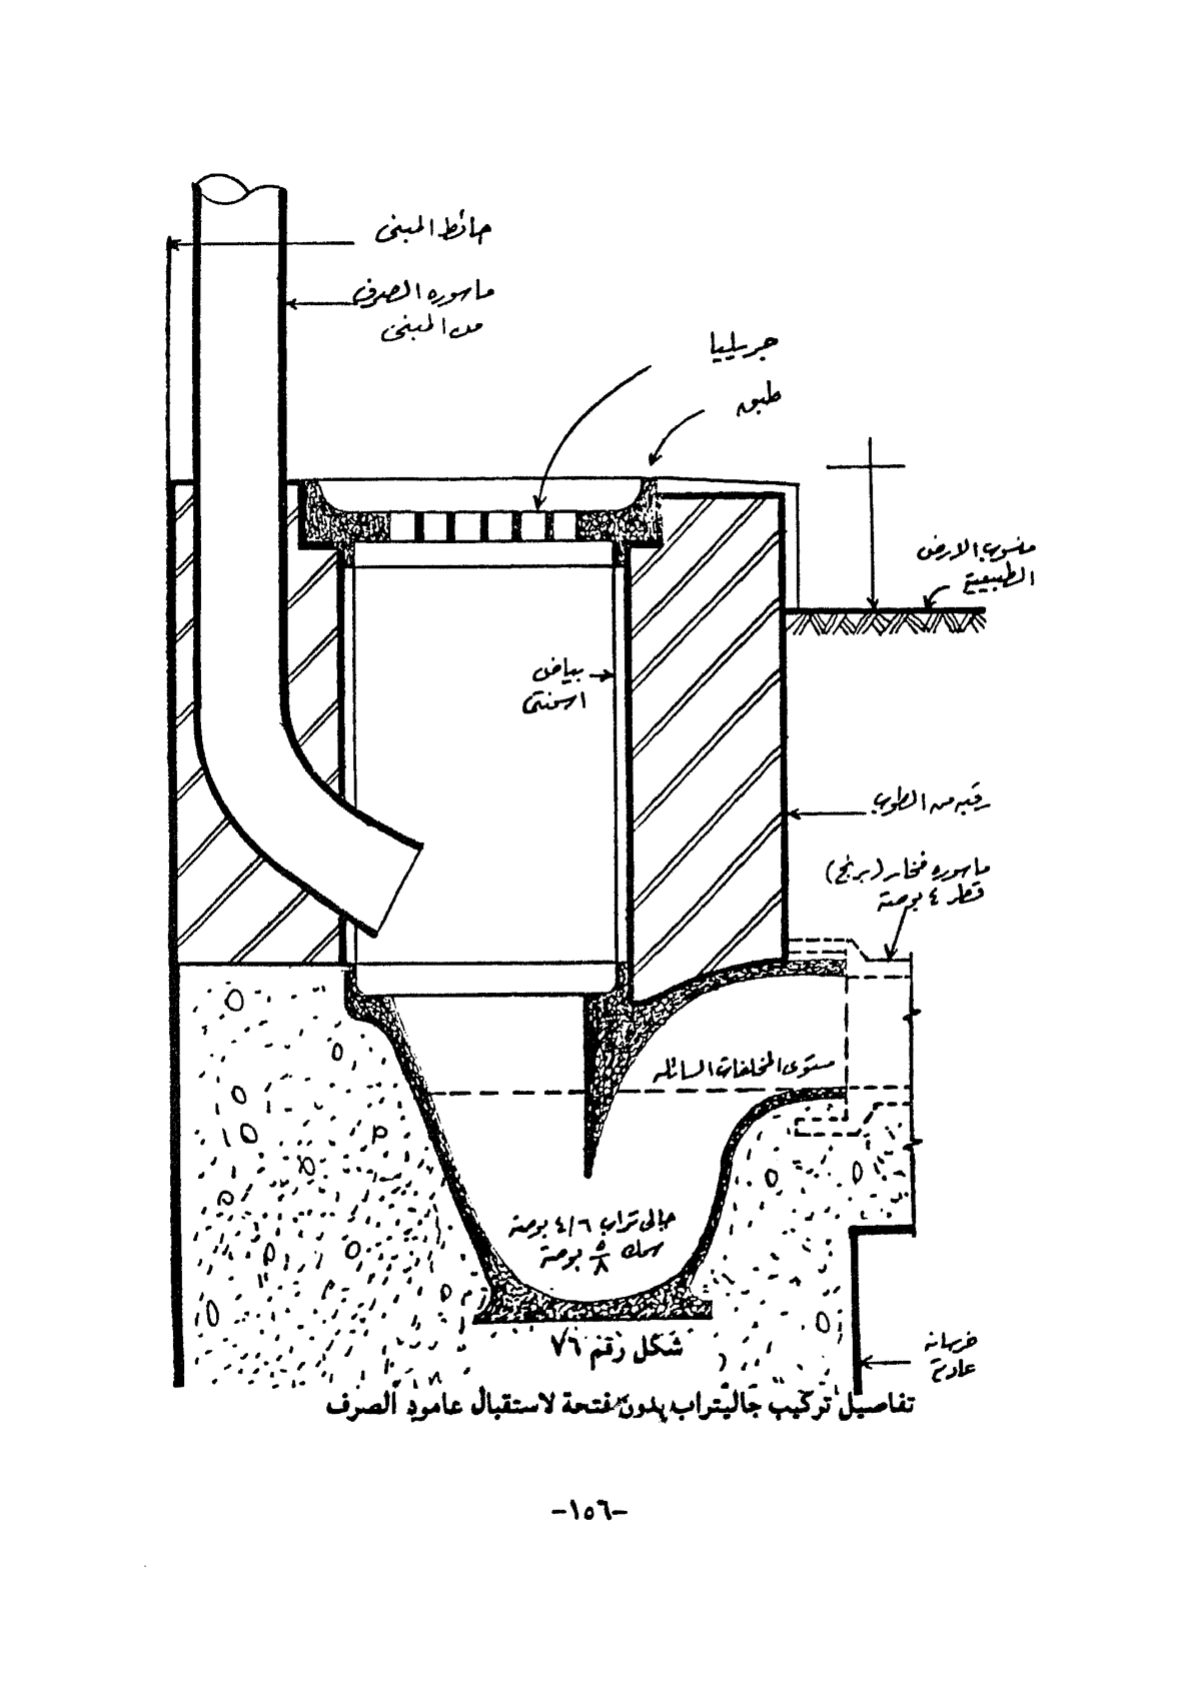 حائط المبنى
ماسوره الصرف
من المبنى
جريليا
طبق
منسوب الارض
الطبيعية
بياض
اسمنتى
رقبه من الطوب
ماسوره فخار (برنج)
قطر ٤ بوصة
مستوى المخلفات السائله
جالى تراب ٤/٦ بوصة
سمك ٥/٨ بوصة
شكل رقم ٧٦
خرسانه
عادية
تفاصيل تركيب جاليتراب بدون فتحة لاستقبال عامود الصرف
-١٥٦-